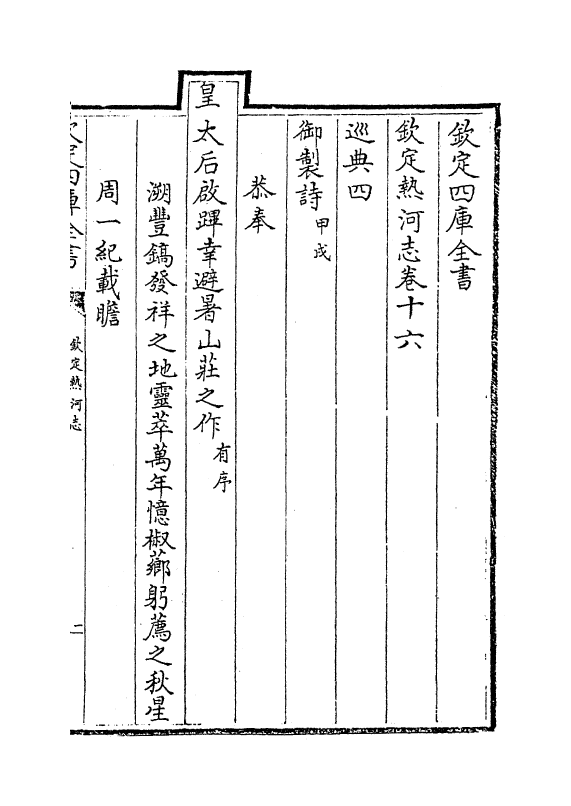 欽定四庫全書
欽定熱河志卷十六
巡典四
御製詩甲戌
恭奉
皇太后啟蹕幸避暑山莊之作有序
溯豐鎬發祥之地靈萃萬年憶椒薌躬薦之秋星
周一紀載瞻
欽定四庫全書
欽定熱河志
二